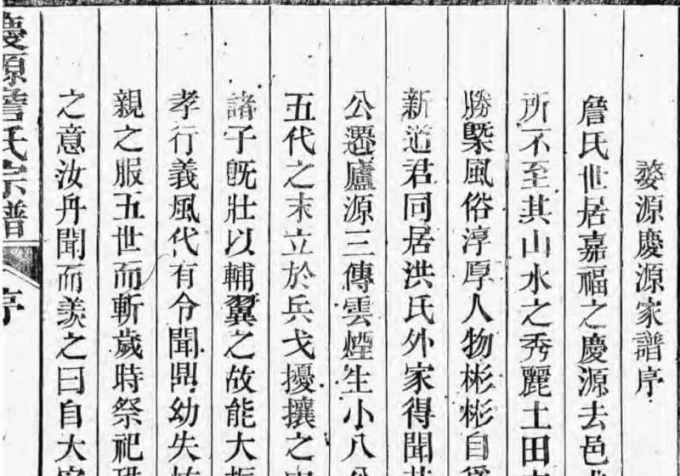 婺源慶源家譜序
詹氏世居嘉福之慶源去邑
所不至其山水之秀麗土田
勝槩風俗淳厚人物彬彬自
新道君同居洪氏外家得聞
公遷廬源三傳雲煙生小八
五代之末立於兵戈擾攘之
諸子旣壯以輔翼之故能大
孝行義風代有令聞鼎幼失
親之服五世而斬歲時祭祀
之意汝舟聞而羙之曰自大
慶源詹氏宗譜
序